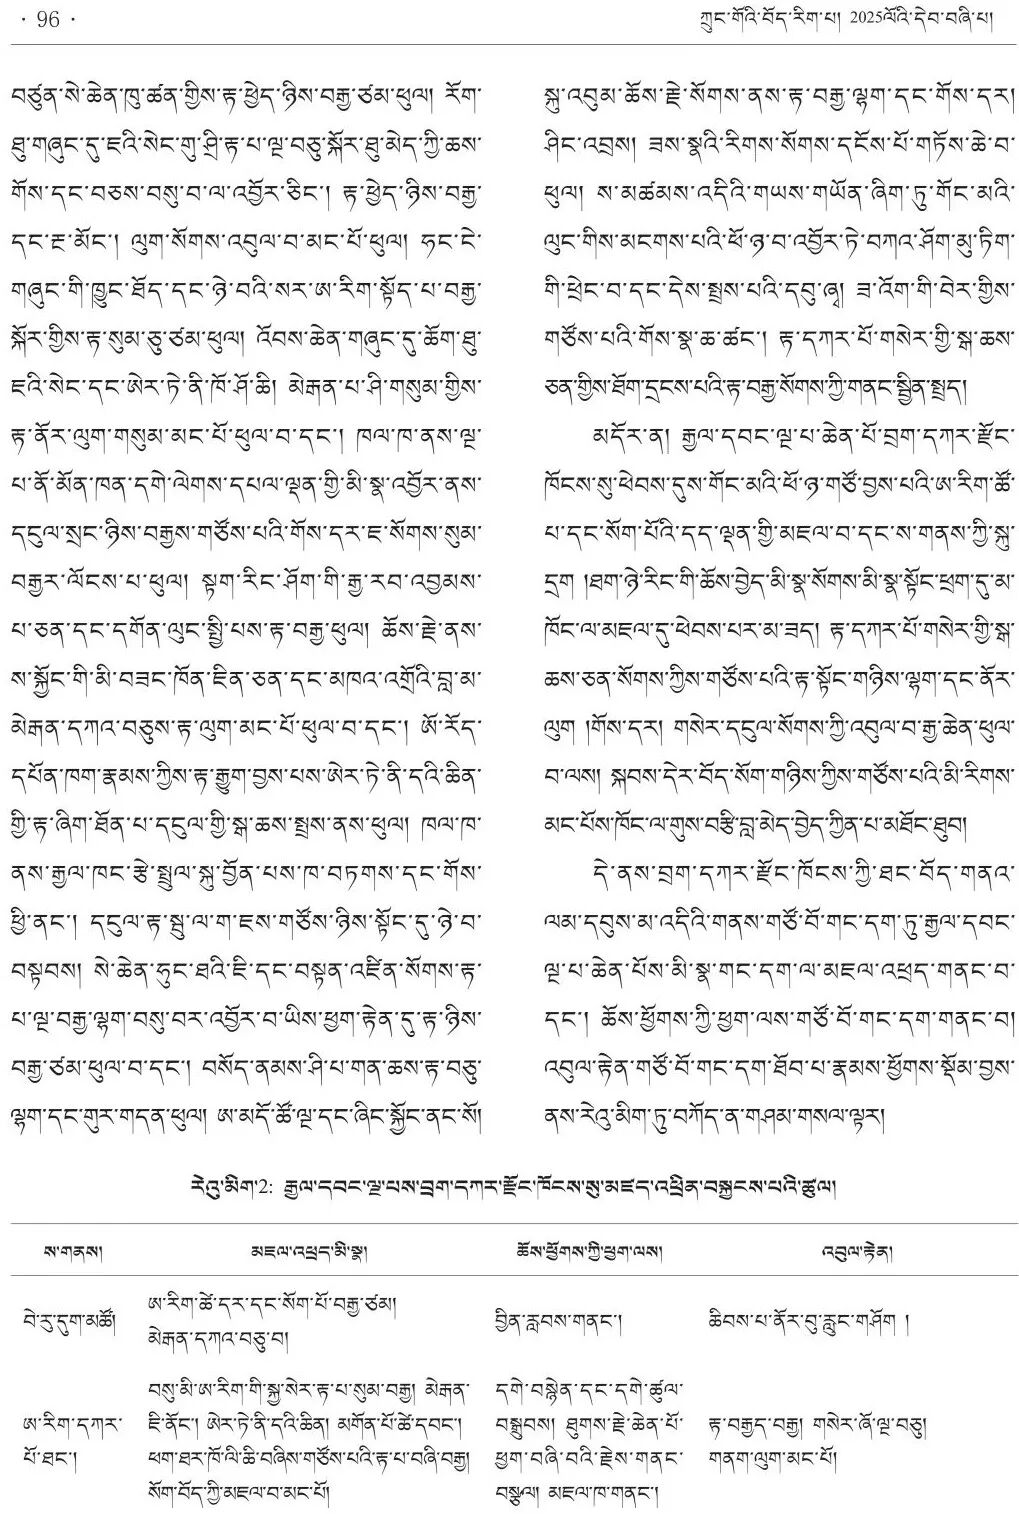 · 96 ·
ཀྲུང་གོའི་བོད་རིག་པ། 2025ལོའི་དེབ་བཞི་པ།
བཙུན་སེ་ཆེན་ཁུ་ཚན་གྱིས་རྟ་ཕྱེད་ཉིས་བརྒྱ་ཙམ་ཕུལ། རོག་
ཐུ་གཞུང་དུ་ཇའི་སེང་གུ་ཤྲི་རྟ་པ་ལྔ་བཅུ་སྐོར་ཐུ་མེད་ཀྱི་ཆས་
གོས་དང་བཅས་བསུ་བ་ལ་འབྱོར་ཅིང་། རྟ་ཕྱེད་ཉིས་བརྒྱ་
དང་རྔ་མོང་། ལུག་སོགས་འབུལ་བ་མང་པོ་ཕུལ། ཧང་ངེ་
གཞུང་གི་ཁྱུང་ཐོད་དང་ཉེ་བའི་སར་ཨ་རིག་སྟོད་པ་བརྒྱ་
སྐོར་གྱིས་རྟ་སུམ་ཅུ་ཙམ་ཕུལ། འོབས་ཆེན་གཞུང་དུ་ཆོག་ཐུ་
ཇའི་སེང་དང་ཨེར་ཏེ་ནི་ཁོ་ཤོ་ཆི། མེརྒན་པ་ཤི་གསུམ་གྱིས་
རྟ་ནོར་ལུག་གསུམ་མང་པོ་ཕུལ་བ་དང་། ཁལ་ཁ་ནས་ལྔ་
པ་ནོ་མོན་ཁན་དགེ་ལེགས་དཔལ་ལྡན་གྱི་མི་སྣ་འབྱོར་ནས་
དངུལ་སྲང་ཉིས་བརྒྱས་གཙོས་པའི་གོས་དར་ཇ་སོགས་སུམ་
བརྒྱར་ལོངས་པ་ཕུལ། སྟག་རིང་ཤོག་གི་རྒྱ་རབ་འབྱམས་
པ་ཅན་དང་དགོན་ལུང་སྤྱི་པས་རྟ་བརྒྱ་ཕུལ། ཆོས་རྗེ་ནས་
ས་སྐྱོང་གི་མི་བཟང་ཁོན་ཇིན་ཅན་དང་མཁའ་འགྲོའི་བླ་མ་
མེརྒན་དཀའ་བཅུས་རྟ་ལུག་མང་པོ་ཕུལ་བ་དང་། ཨོ་རོད་
དཔོན་ཁག་རྣམས་ཀྱིས་རྟ་རྒྱུག་བྱས་པས་ཨེར་ཏེ་ནི་དའི་ཆིན་
གྱི་རྟ་ཞིག་ཐོན་པ་དངུལ་གྱི་སྒ་ཆས་སྤྲས་ནས་ཕུལ། ཁལ་ཁ་
ནས་རྒྱལ་ཁང་རྩེ་སྤྲུལ་སྐུ་བྱོན་པས་ཁ་བཏགས་དང་གོས་
ཕྱི་ནང་། དངུལ་རྟ་སྦུ་ལ་ག་ཇས་གཙོས་ཉིས་སྟོང་དུ་ཉེ་བ་
བསྟབས། སེ་ཆེན་ཧུང་ཐའི་ཇི་དང་བསྟན་འཛིན་སོགས་རྟ་
པ་ལྔ་བརྒྱ་ལྷག་བསུ་བར་འབྱོར་བ་ཡིས་ཕྱག་རྟེན་དུ་རྟ་ཉིས་
བརྒྱ་ཙམ་ཕུལ་བ་དང་། བསོད་ནམས་ཤི་པ་གན་ཆས་རྟ་བཅུ་
ལྷག་དང་གུར་གདན་ཕུལ། ཨ་མདོ་ཚོ་ལྔ་དང་ཞིང་སྐྱོང་ནང་སོ།
སྐུ་འབུམ་ཆོས་རྗེ་སོགས་ནས་རྟ་བརྒྱ་ལྷག་དང་གོས་དར།
ཤིང་འབྲས། ཟས་སྣའི་རིགས་སོགས་དངོས་པོ་གཏོས་ཆེ་བ་
ཕུལ། ས་མཚམས་འདིའི་གཡས་གཡོན་ཞིག་ཏུ་གོང་མའི་
ལུང་གིས་མངགས་པའི་ཕོ་ཉ་བ་འབྱོར་ཏེ་བཀའ་ཤོག་མུ་ཏིག་
གི་ཕྲེང་བ་དང་དེས་སྤྲས་པའི་དབུ་ཞྭ། ཟ་འོག་གི་བེར་གྱིས་
གཙོས་པའི་གོས་སྣ་ཆ་ཚང་། རྟ་དཀར་པོ་གསེར་གྱི་སྒ་ཆས་
ཅན་གྱིས་ཐོག་དྲངས་པའི་རྟ་བརྒྱ་སོགས་ཀྱི་གནང་སྦྱིན་སྤྲད།
མདོར་ན། རྒྱལ་དབང་ལྔ་པ་ཆེན་པོ་བྲག་དཀར་རྫོང་
ཁོངས་སུ་ཕེབས་དུས་གོང་མའི་ཕོ་ཉ་གཙོ་བྱས་པའི་ཨ་རིག་ཚོ་
པ་དང་སོག་པོའི་དད་ལྡན་གྱི་མཇལ་བ་དང་ས་གནས་ཀྱི་སྐུ་
དྲག །ཐག་ཉེ་རིང་གི་ཆོས་བྱེད་མི་སྣ་སོགས་མི་སྣ་སྟོང་ཕྲག་དུ་མ་
ཁོང་ལ་མཇལ་དུ་ཕེབས་པར་མ་ཟད། རྟ་དཀར་པོ་གསེར་གྱི་སྒ་
ཆས་ཅན་སོགས་ཀྱིས་གཙོས་པའི་རྟ་སྟོང་གཉིས་ལྷག་དང་ནོར་
ལུག །གོས་དར། གསེར་དངུལ་སོགས་ཀྱི་འབུལ་བ་རྒྱ་ཆེན་ཕུལ་
བ་ལས། སྐབས་དེར་བོད་སོག་གཉིས་ཀྱིས་གཙོས་པའི་མི་རིགས་
མང་པོས་ཁོང་ལ་གུས་བརྩི་བླ་མེད་བྱེད་ཀྱིན་པ་མཐོང་ཐུབ།
དེ་ནས་བྲག་དཀར་རྫོང་ཁོངས་ཀྱི་ཐང་བོད་གནའ་
ལམ་དབུས་མ་འདིའི་གནས་གཙོ་བོ་གང་དག་ཏུ་རྒྱལ་དབང་
ལྔ་པ་ཆེན་པོས་མི་སྣ་གང་དག་ལ་མཇལ་འཕྲད་གནང་བ་
དང་། ཆོས་ཕྱོགས་ཀྱི་ཕྱག་ལས་གཙོ་བོ་གང་དག་གནང་བ།
འབུལ་རྟེན་གཙོ་བོ་གང་དག་ཐོབ་པ་རྣམས་ཕྱོགས་སྡོམ་བྱས་
ནས་རེའུ་མིག་ཏུ་བཀོད་ན་གཤམ་གསལ་ལྟར།
རེའུ་མིག་2: རྒྱལ་དབང་ལྔ་པས་བྲག་དཀར་རྫོང་ཁོངས་སུ་མཛད་འཕྲིན་བསྐྱངས་པའི་ཚུལ།
ས་གནས། མཇལ་འཕྲད་མི་སྣ། ཆོས་ཕྱོགས་ཀྱི་ཕྱག་ལས། འབུལ་རྟེན།
བེ་རུ་དུག་མཚོ། ཨ་རིག་ཚེ་དར་དང་སོག་པོ་བརྒྱ་ཙམ། བྱིན་རླབས་གནང་། ཆིབས་པ་ནོར་བུ་རླུང་གཤོག །
མེརྒན་དཀའ་བཅུ་བ།
བསུ་མི་ཨ་རིག་གི་སྐྱ་སེར་རྟ་པ་སུམ་བརྒྱ། མེརྒན་ དགེ་བསྙེན་དང་དགེ་ཚུལ་
ཨ་རིག་དཀར་ ཇི་ནོང་། ཨེར་ཏེ་ནི་དའི་ཆིན། མགོན་པོ་ཚེ་དབང་། བསྒྲུབས། ཐུགས་རྗེ་ཆེན་པོ་ རྟ་བརྒྱད་བརྒྱ། གསེར་ཞོ་ལྔ་བཅུ།
པོ་ཐང་། ཕག་ཐར་ཁོ་ལི་ཆི་བཞིས་གཙོས་པའི་རྟ་པ་བཞི་བརྒྱ། ཕྱག་བཞི་བའི་རྗེས་གནང་ གནག་ལུག་མང་པོ།
སོག་བོད་ཀྱི་མཇལ་བ་མང་པོ། བསྩལ། མཇལ་ཁ་གནང་།